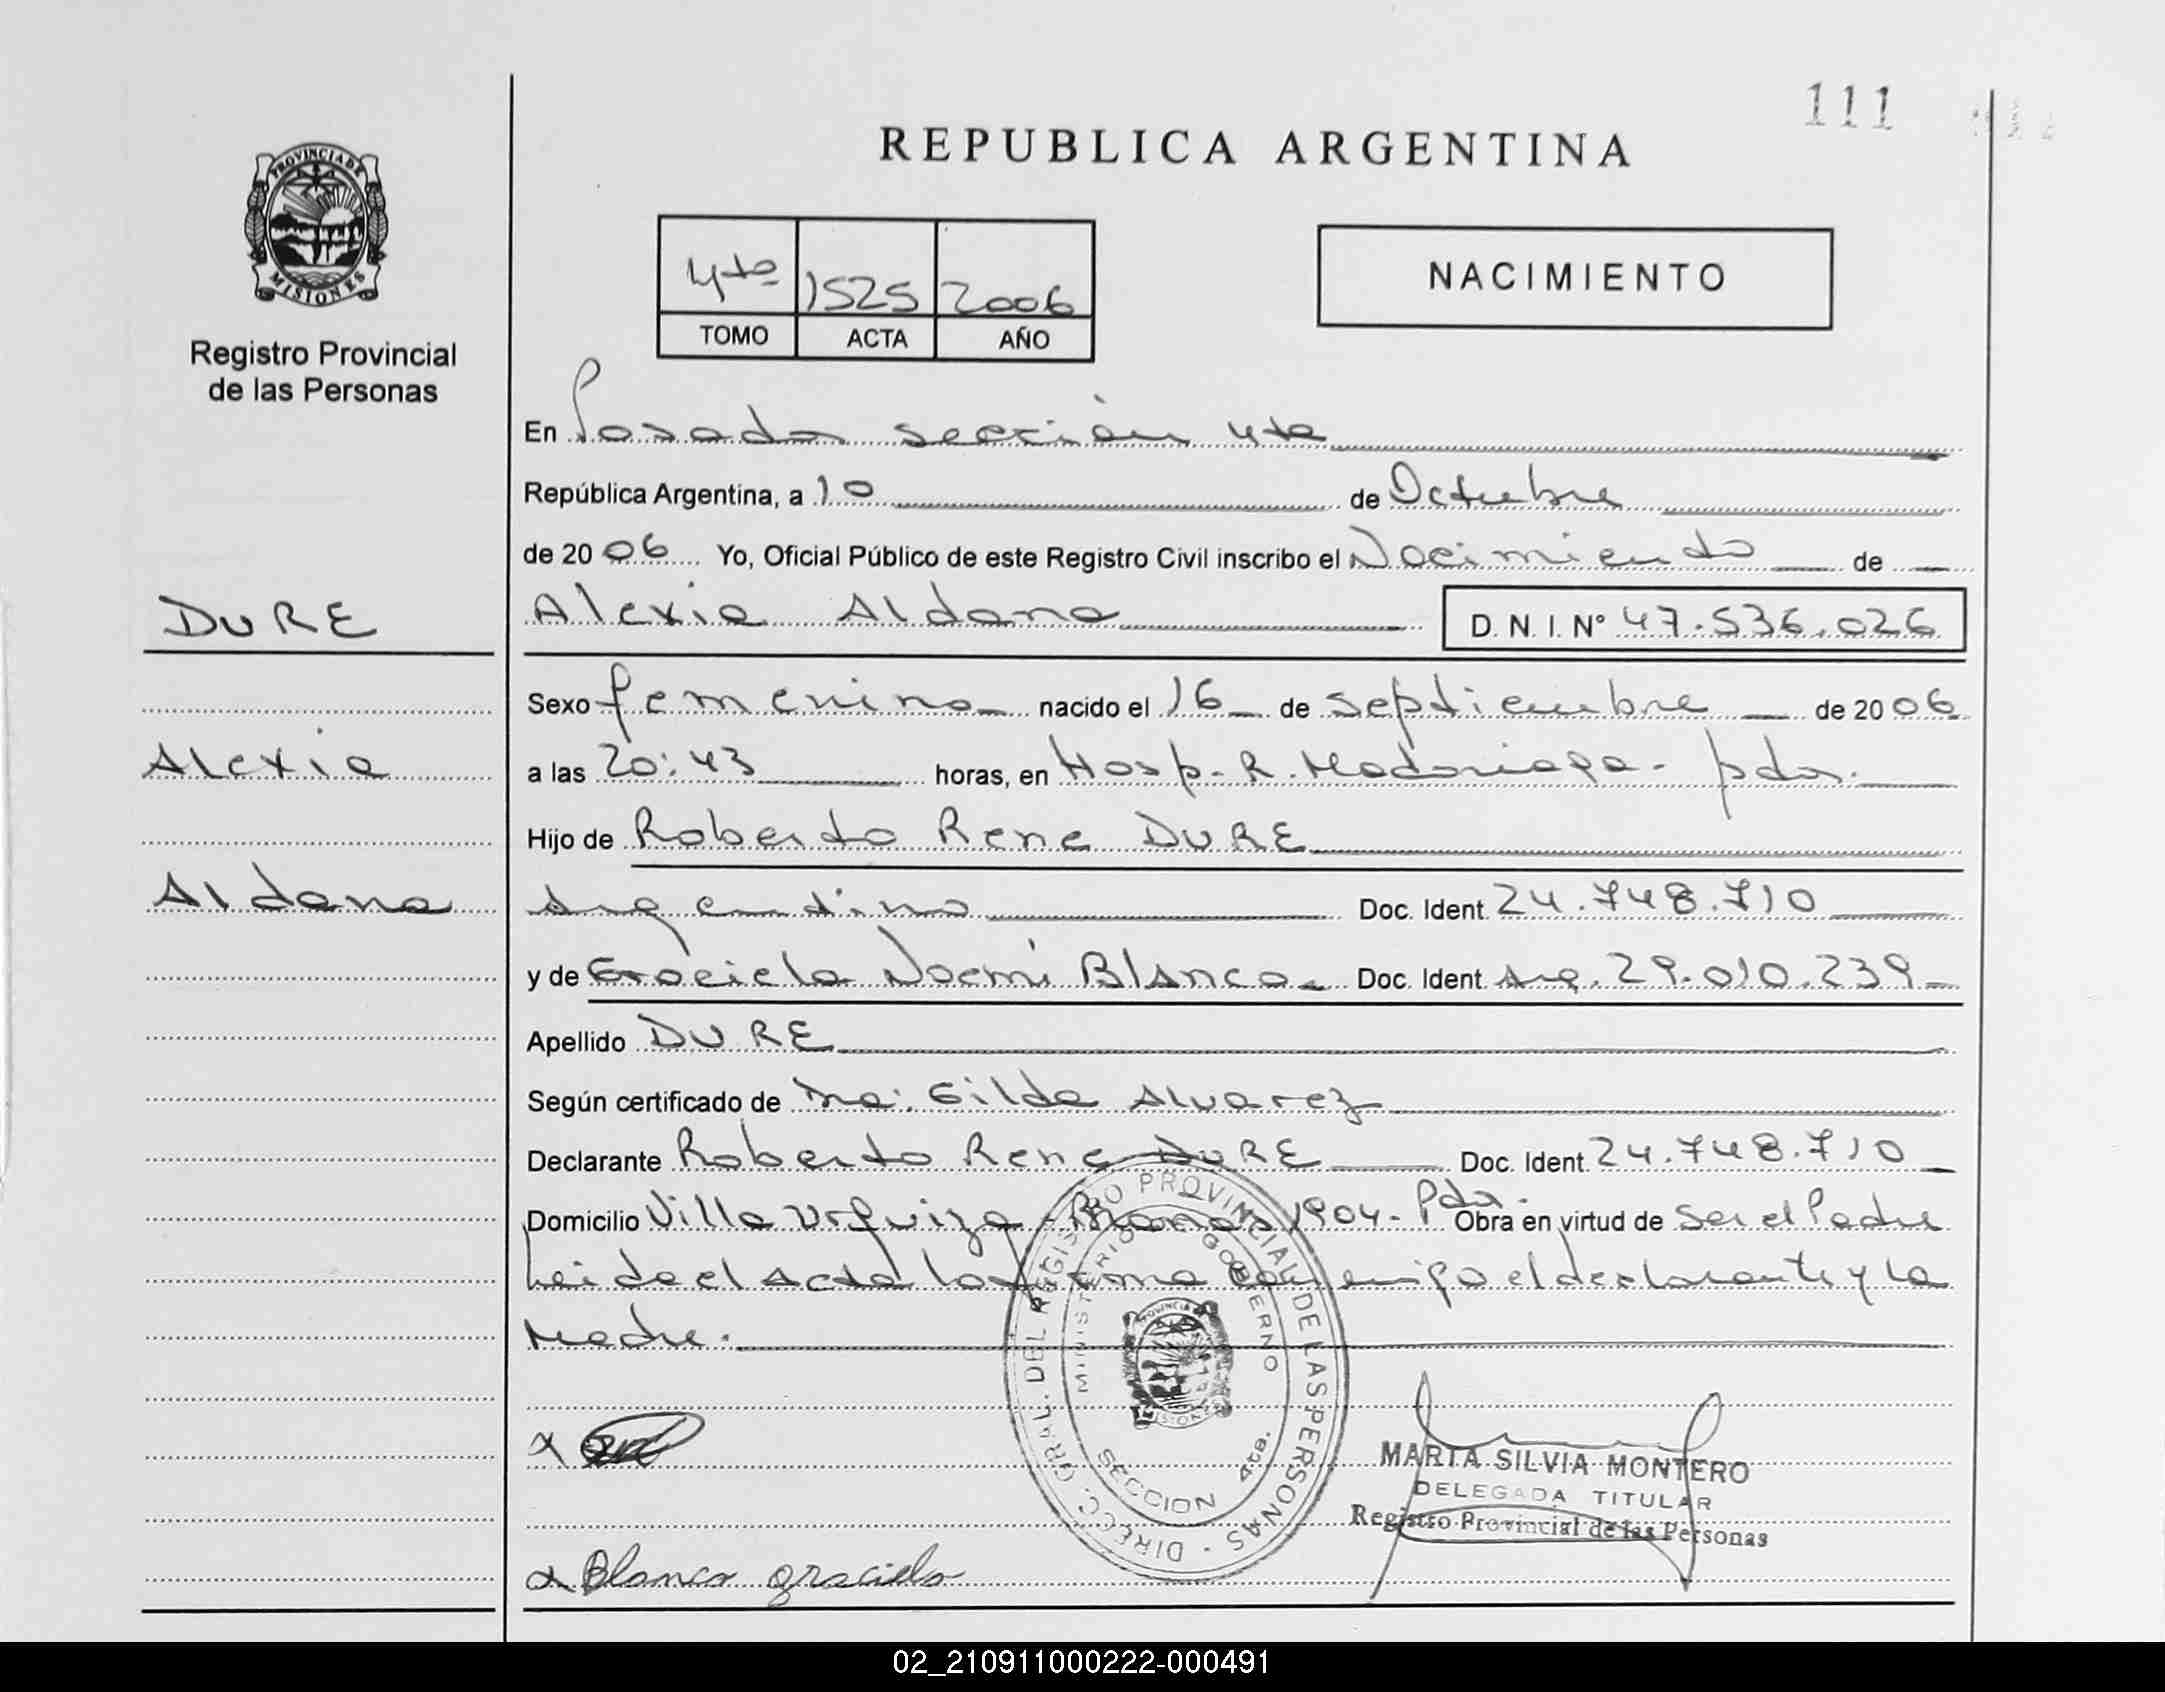 111
REPUBLICA ARGENTINA
PROVINCIA DE
MISIONES
Registro Provincial
de las Personas
4ta 1525 2006
TOMO ACTA AÑO
NACIMIENTO
En Posadas sección 4ta
República Argentina, a 10 de Octubre
de 20 06 Yo, Oficial Público de este Registro Civil inscribo el Nacimiento de
DURE
Alexia Aldana D. N. I. N° 47.536.026
Sexo femenino nacido el 16 de septiembre de 20 06
Alexia
a las 20:43 horas, en Hosp. R. Madariaga - pdas.
Hijo de Roberto Rene DURE
Aldana
Argentino Doc. Ident. 24.748.710
y de Graciela Noemi Blanco Doc. Ident. Arg. 29.010.239
Apellido DURE
Según certificado de Dra. Gilda Alvarez
Declarante Roberto Rene DURE Doc. Ident. 24.748.710
Domicilio Villa Urquiza - 1904 - Pdas. Obra en virtud de ser el Padre
Leida el Acta la firma conmigo el declarante y la
Madre.
DIRECC. GRAL. DEL REGISTRO PROVINCIAL DE LAS PERSONAS
MINISTERIO DE GOBIERNO
SECCION 4ta.
MARTA SILVIA MONTERO
DELEGADA TITULAR
Registro Provincial de las Personas
x Blanco graciela
02_210911000222-000491